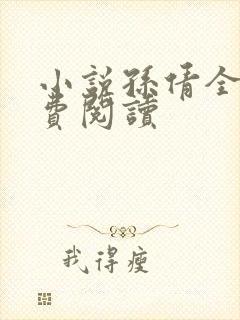 小說孫倩全
費閱讀
我得瘦